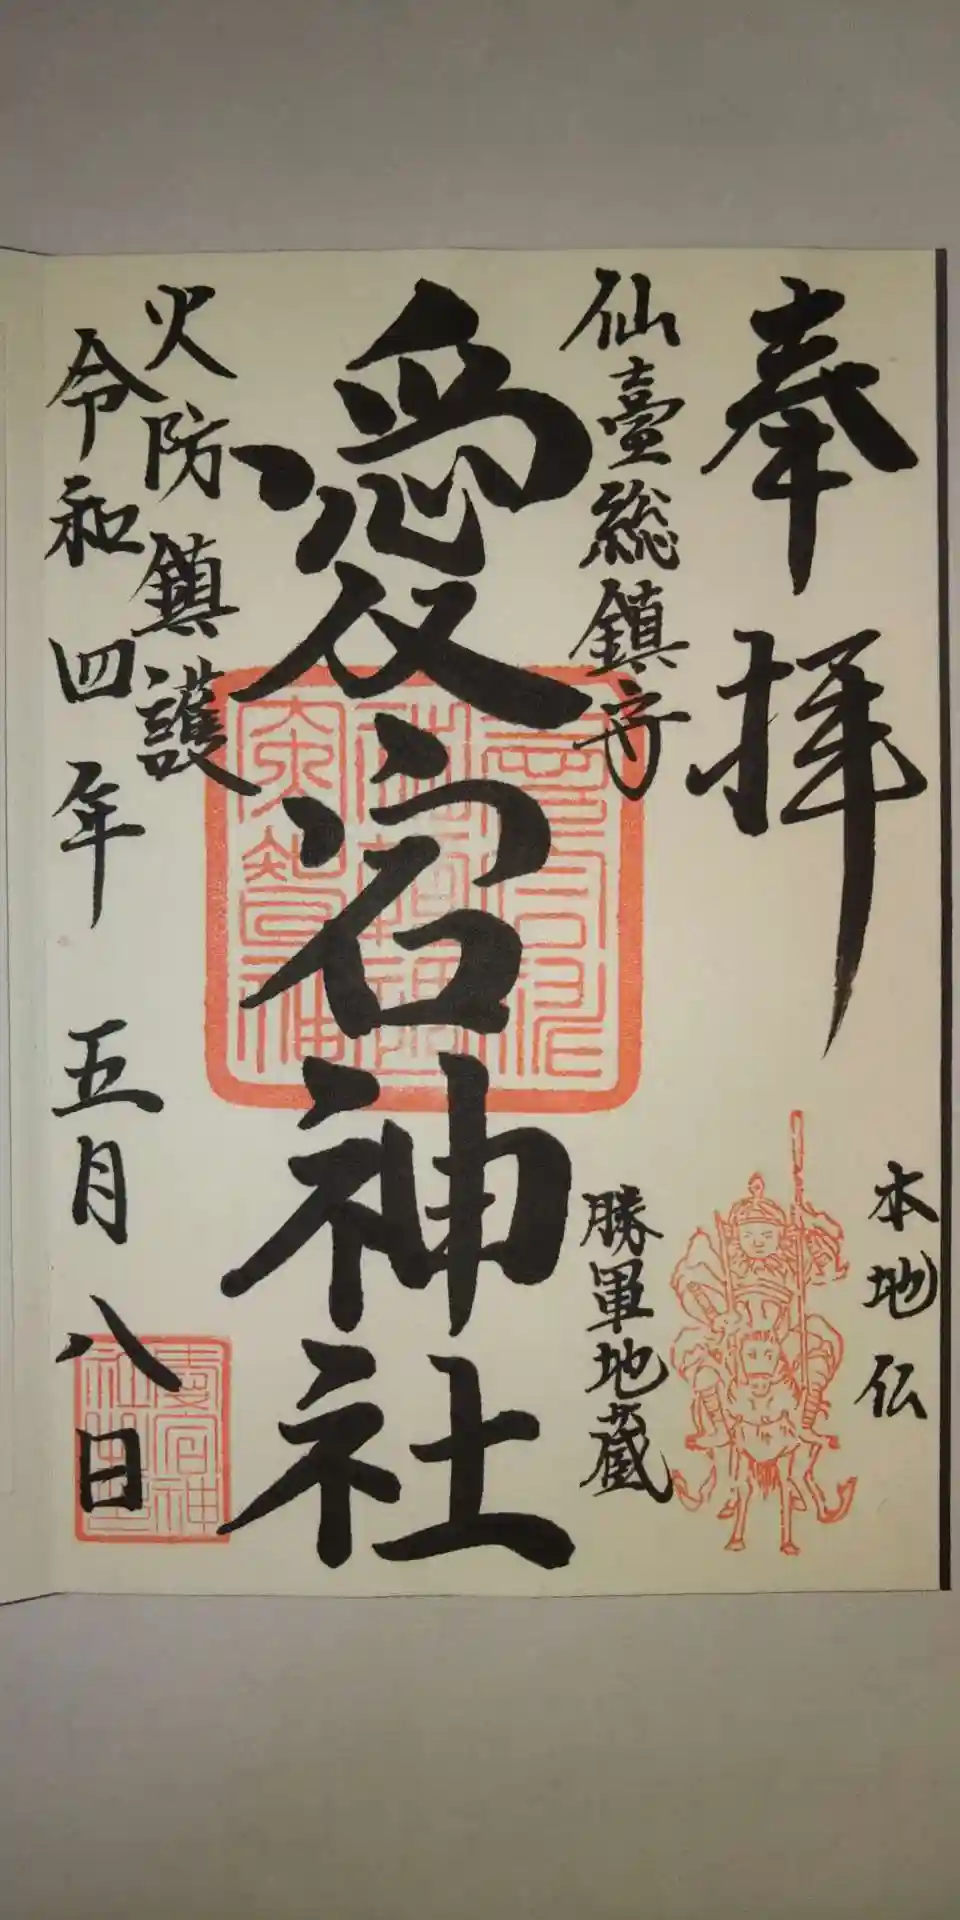 奉拝
本地仏
仙臺総鎮守
勝軍地蔵
愛宕神社
火防鎮護
令和四年五月八日